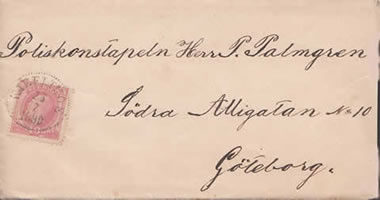 Poliskonstapeln Herr P. Palmgren
Södra Alligatan No 10
Göteborg.